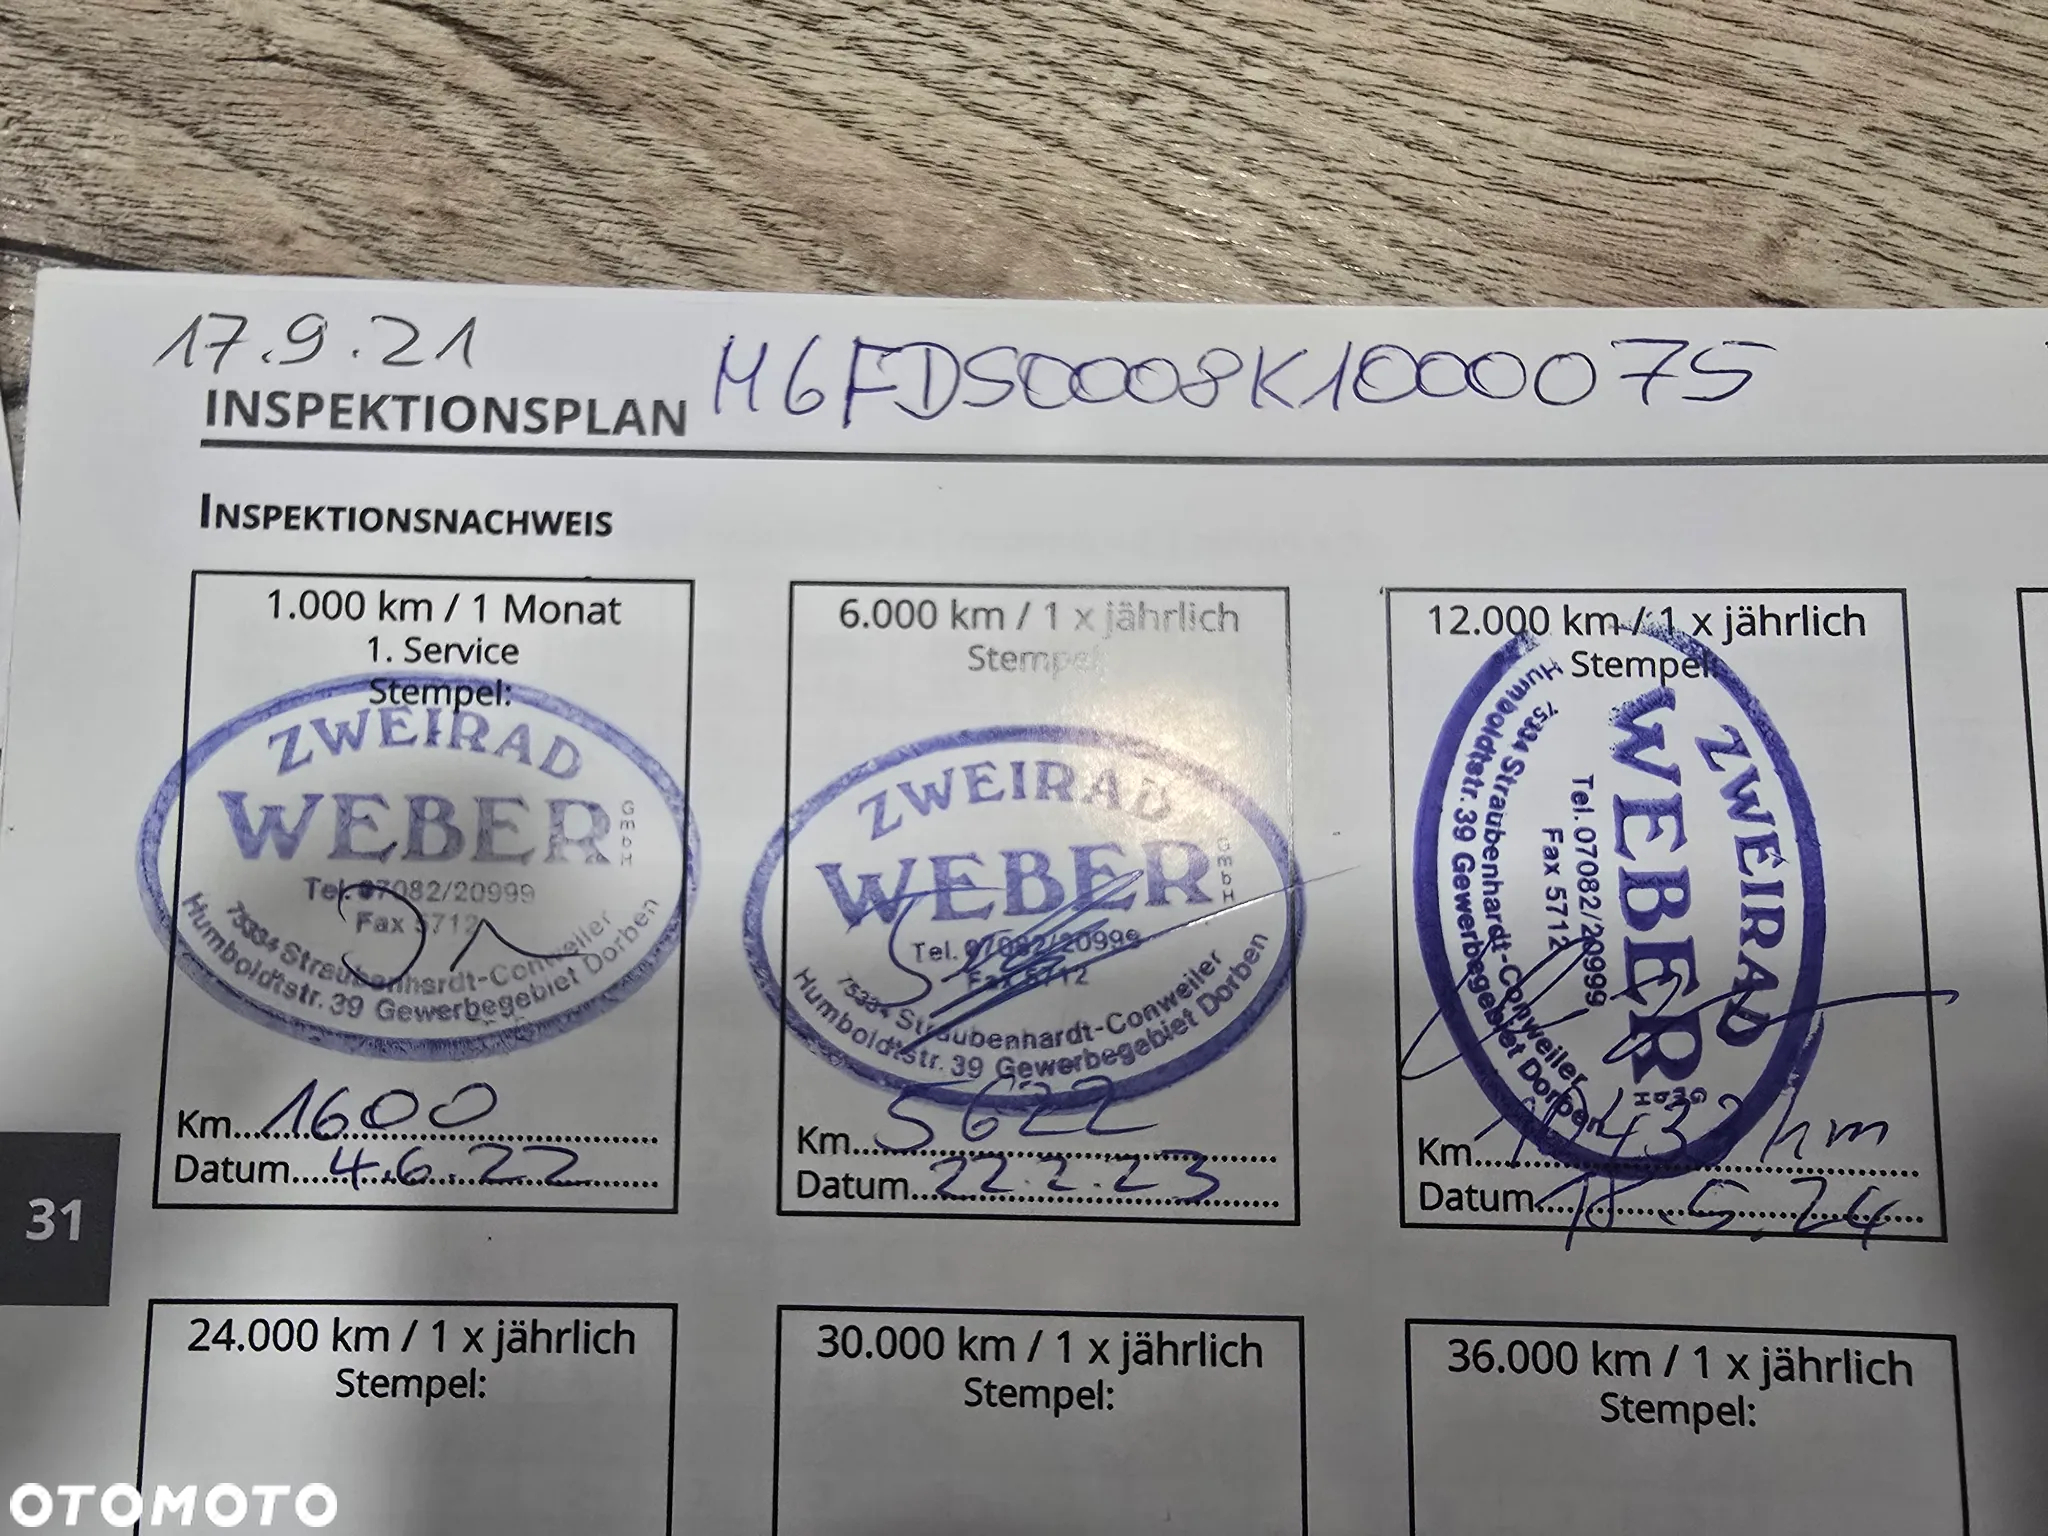 17.9.21
INSPEKTIONSPLAN M6FDS0008K1000075
INSPEKTIONSNACHWEIS
1.000 km / 1 Monat
1. Service
Stempel:
ZWEIRAD
WEBER GmbH
Tel. 07082/20999
Fax 5712
75334 Straubenhardt-Conweiler
Humboldtstr. 39 Gewerbegebiet Dorben
Km 1600
Datum 4.6.22
6.000 km / 1 x jährlich
Stempel:
ZWEIRAD
WEBER GmbH
Tel. 07082/20999
Fax 5712
75334 Straubenhardt-Conweiler
Humboldtstr. 39 Gewerbegebiet Dorben
Km 5622
Datum 22.2.23
12.000 km / 1 x jährlich
Stempel:
ZWEIRAD
WEBER GmbH
Tel. 07082/20999
Fax 5712
75334 Straubenhardt-Conweiler
Humboldtstr. 39 Gewerbegebiet Dorben
Km
Datum
31
24.000 km / 1 x jährlich
Stempel:
30.000 km / 1 x jährlich
Stempel:
36.000 km / 1 x jährlich
Stempel:
OTOMOTO